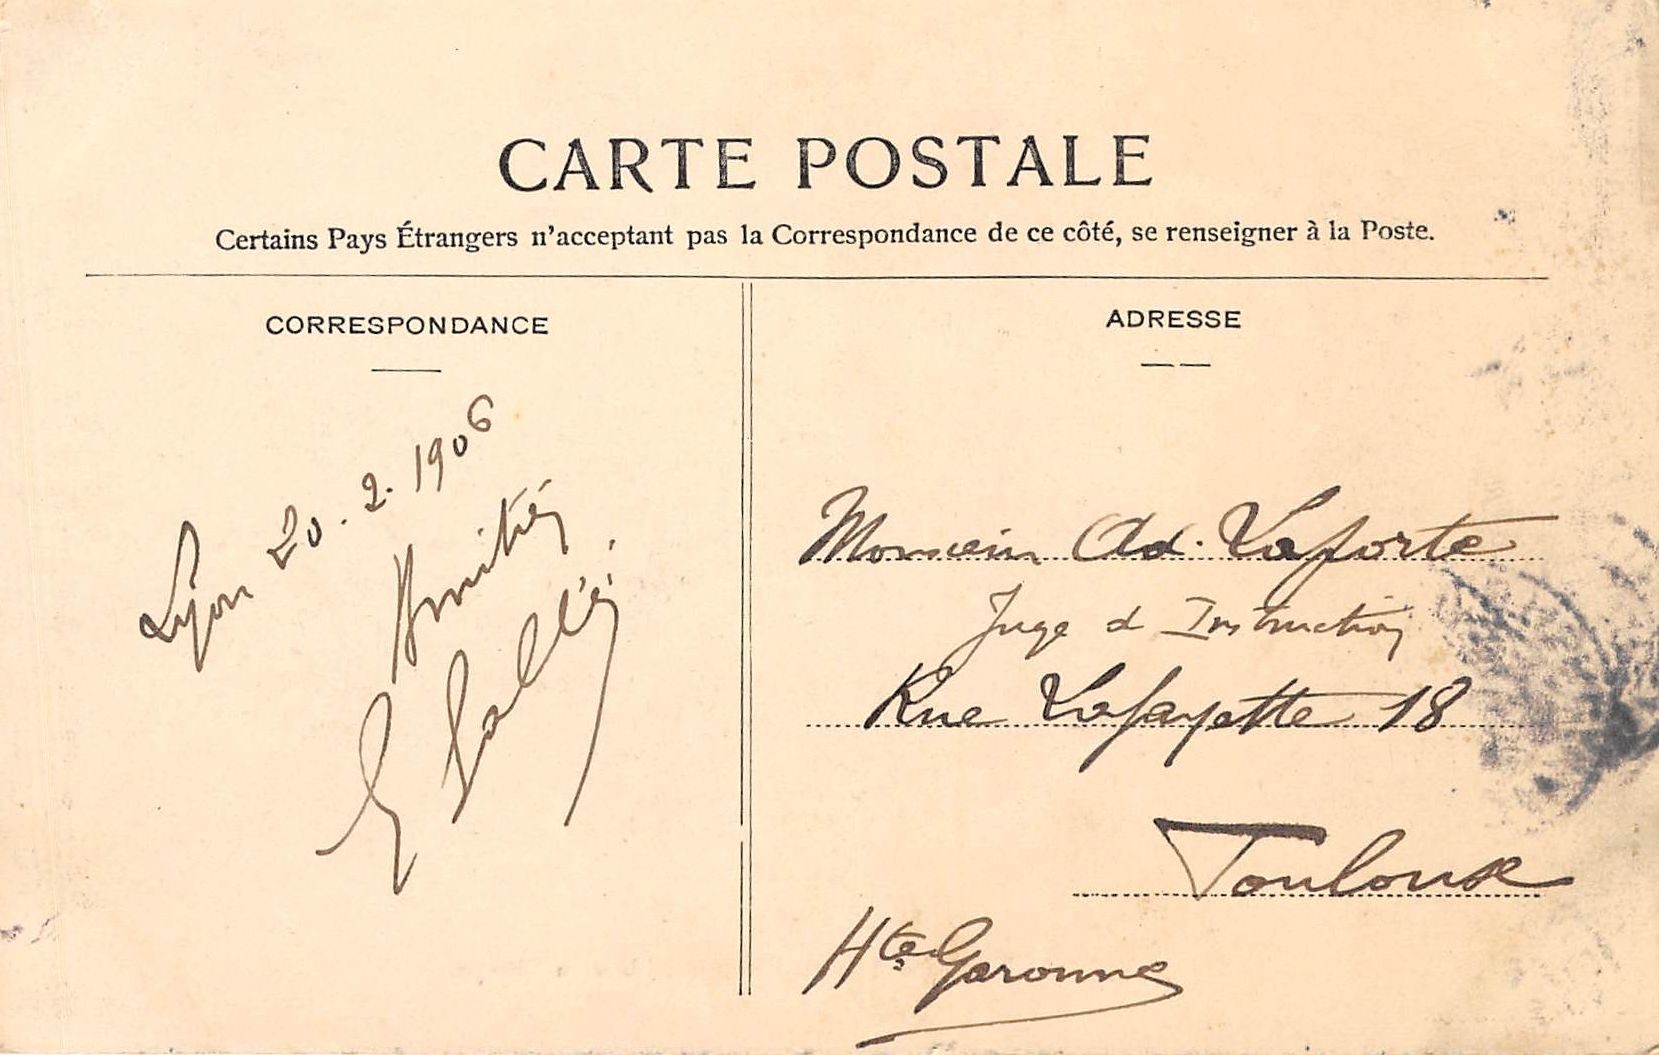 CARTE POSTALE
Certains Pays Étrangers n'acceptant pas la Correspondance de ce côté, se renseigner à la Poste.
CORRESPONDANCE
Lyon 20.2.1906
Amitiés
E
ADRESSE
Monsieur Ad. Laporte
Juge d Instruction
Rue Lafayette 18
Toulouse
Hte Garonne